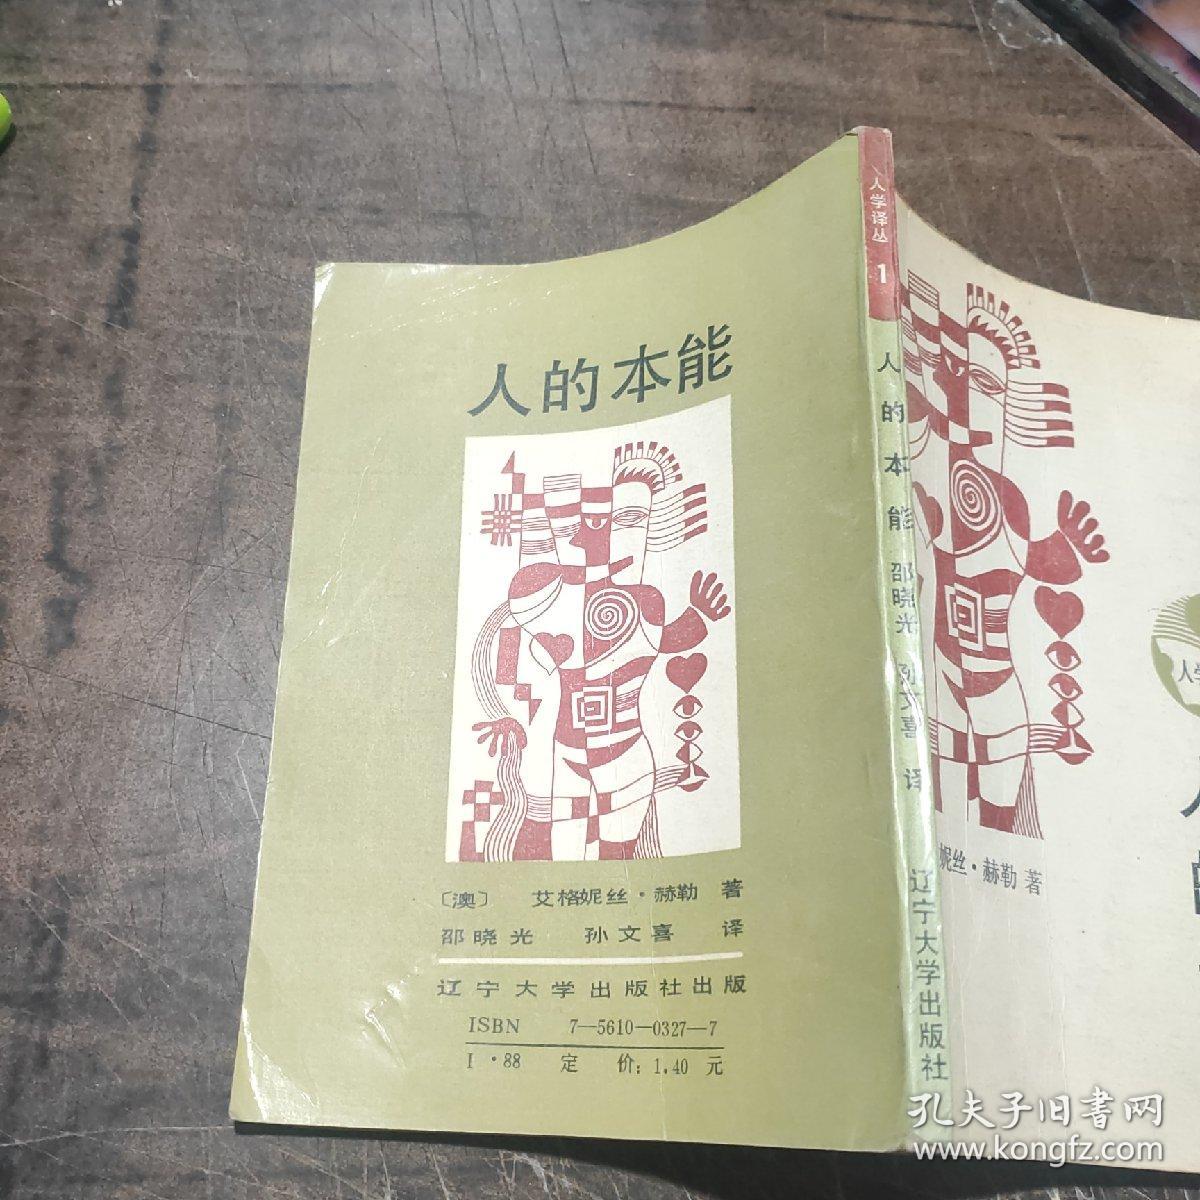 人的本能
〔澳〕 艾格妮丝·赫勒 著
邵晓光 孙文喜 译
辽宁大学出版社出版
ISBN 7—5610—0327—7
I·88 定 价：1.40 元
人学译丛
1
人的本能 邵晓光 孙文喜 译 辽宁大学出版社
妮丝·赫勒 著
人学
孔夫子旧书网
www.kongfz.com